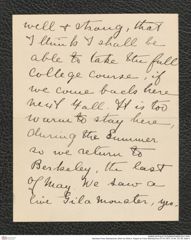 well & strong, that
I think I shall be
able to take the full
College course, if
we come back here
next Fall. It is too
warm to stay here,
during the Summer
so we return to
Berkeley, the last
of May. We saw a
live Gila monster, yes-